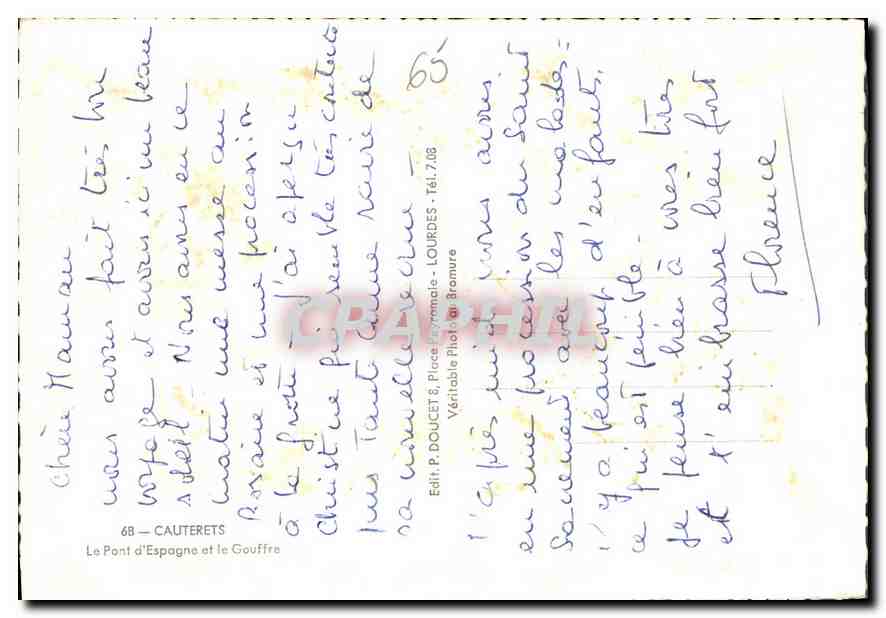 Chère Maman
nous avons fait très bon
voyage et avons ici un beau
soleil - Nous avons eu ce
matin une messe au
Rosaire et une procession
à la grotte - J'ai aperçu
Christine qui semble très contente
puis Tante Anne ravie de
sa nouvelle
65
6B — CAUTERETS
Le Pont d'Espagne et le Gouffre
Edit. P. DOUCET 8, Place Peyramale - LOURDES - Tél. 7.08
Véritable Photo au Bromure
CPAPHIL
L'après midi nous avons
eu une procession du Saint
Sacrement avec les malades =
il y a beaucoup d'enfants,
ce qui est pénible -
Je pense bien à vous tres
et t'embrasse bien fort
Florence